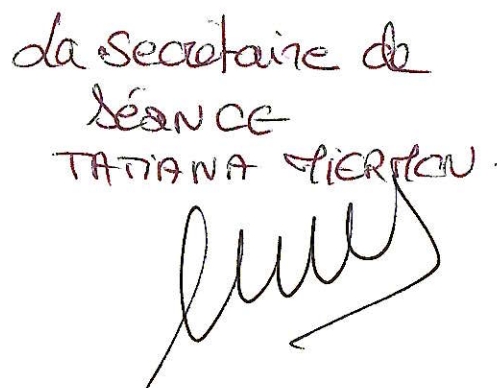 La Secrétaire de
SÉANCE
TATIANA MIERMON.